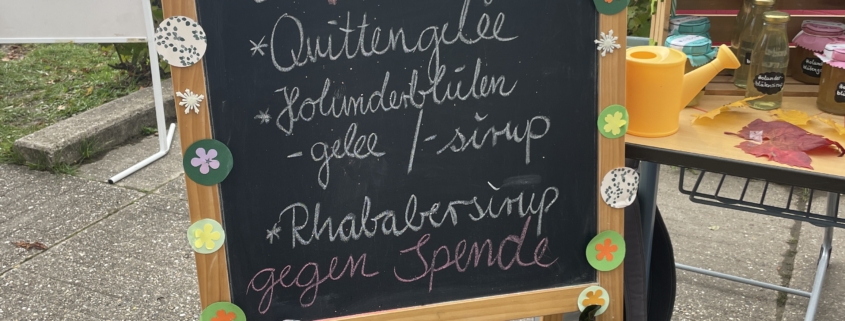 * Quittengelee
* Holunderblüten
- gelee / - sirup
* Rhababersirup
gegen Spende